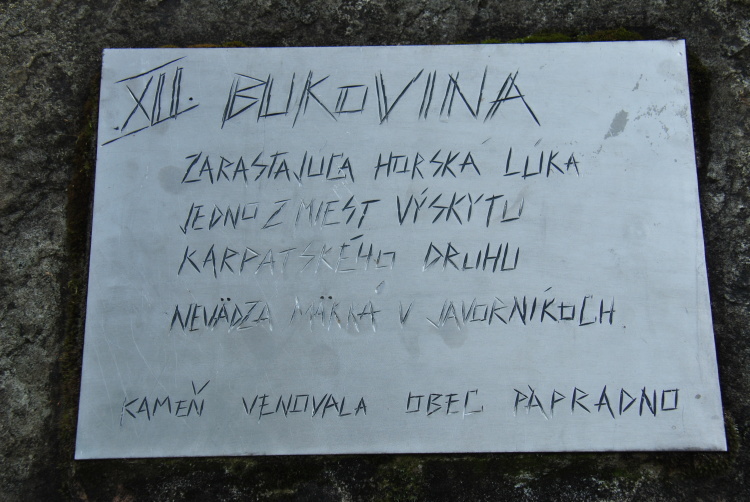 XII. BUKOVINA
ZARASTAJÚCA HORSKÁ LÚKA
JEDNO Z MIEST VÝSKYTU
KARPATSKÉHO DRUHU
NEVÄDZA MÄKKÁ V JAVORNÍKOCH
KAMEŇ VENOVALA OBEC PAPRADNO